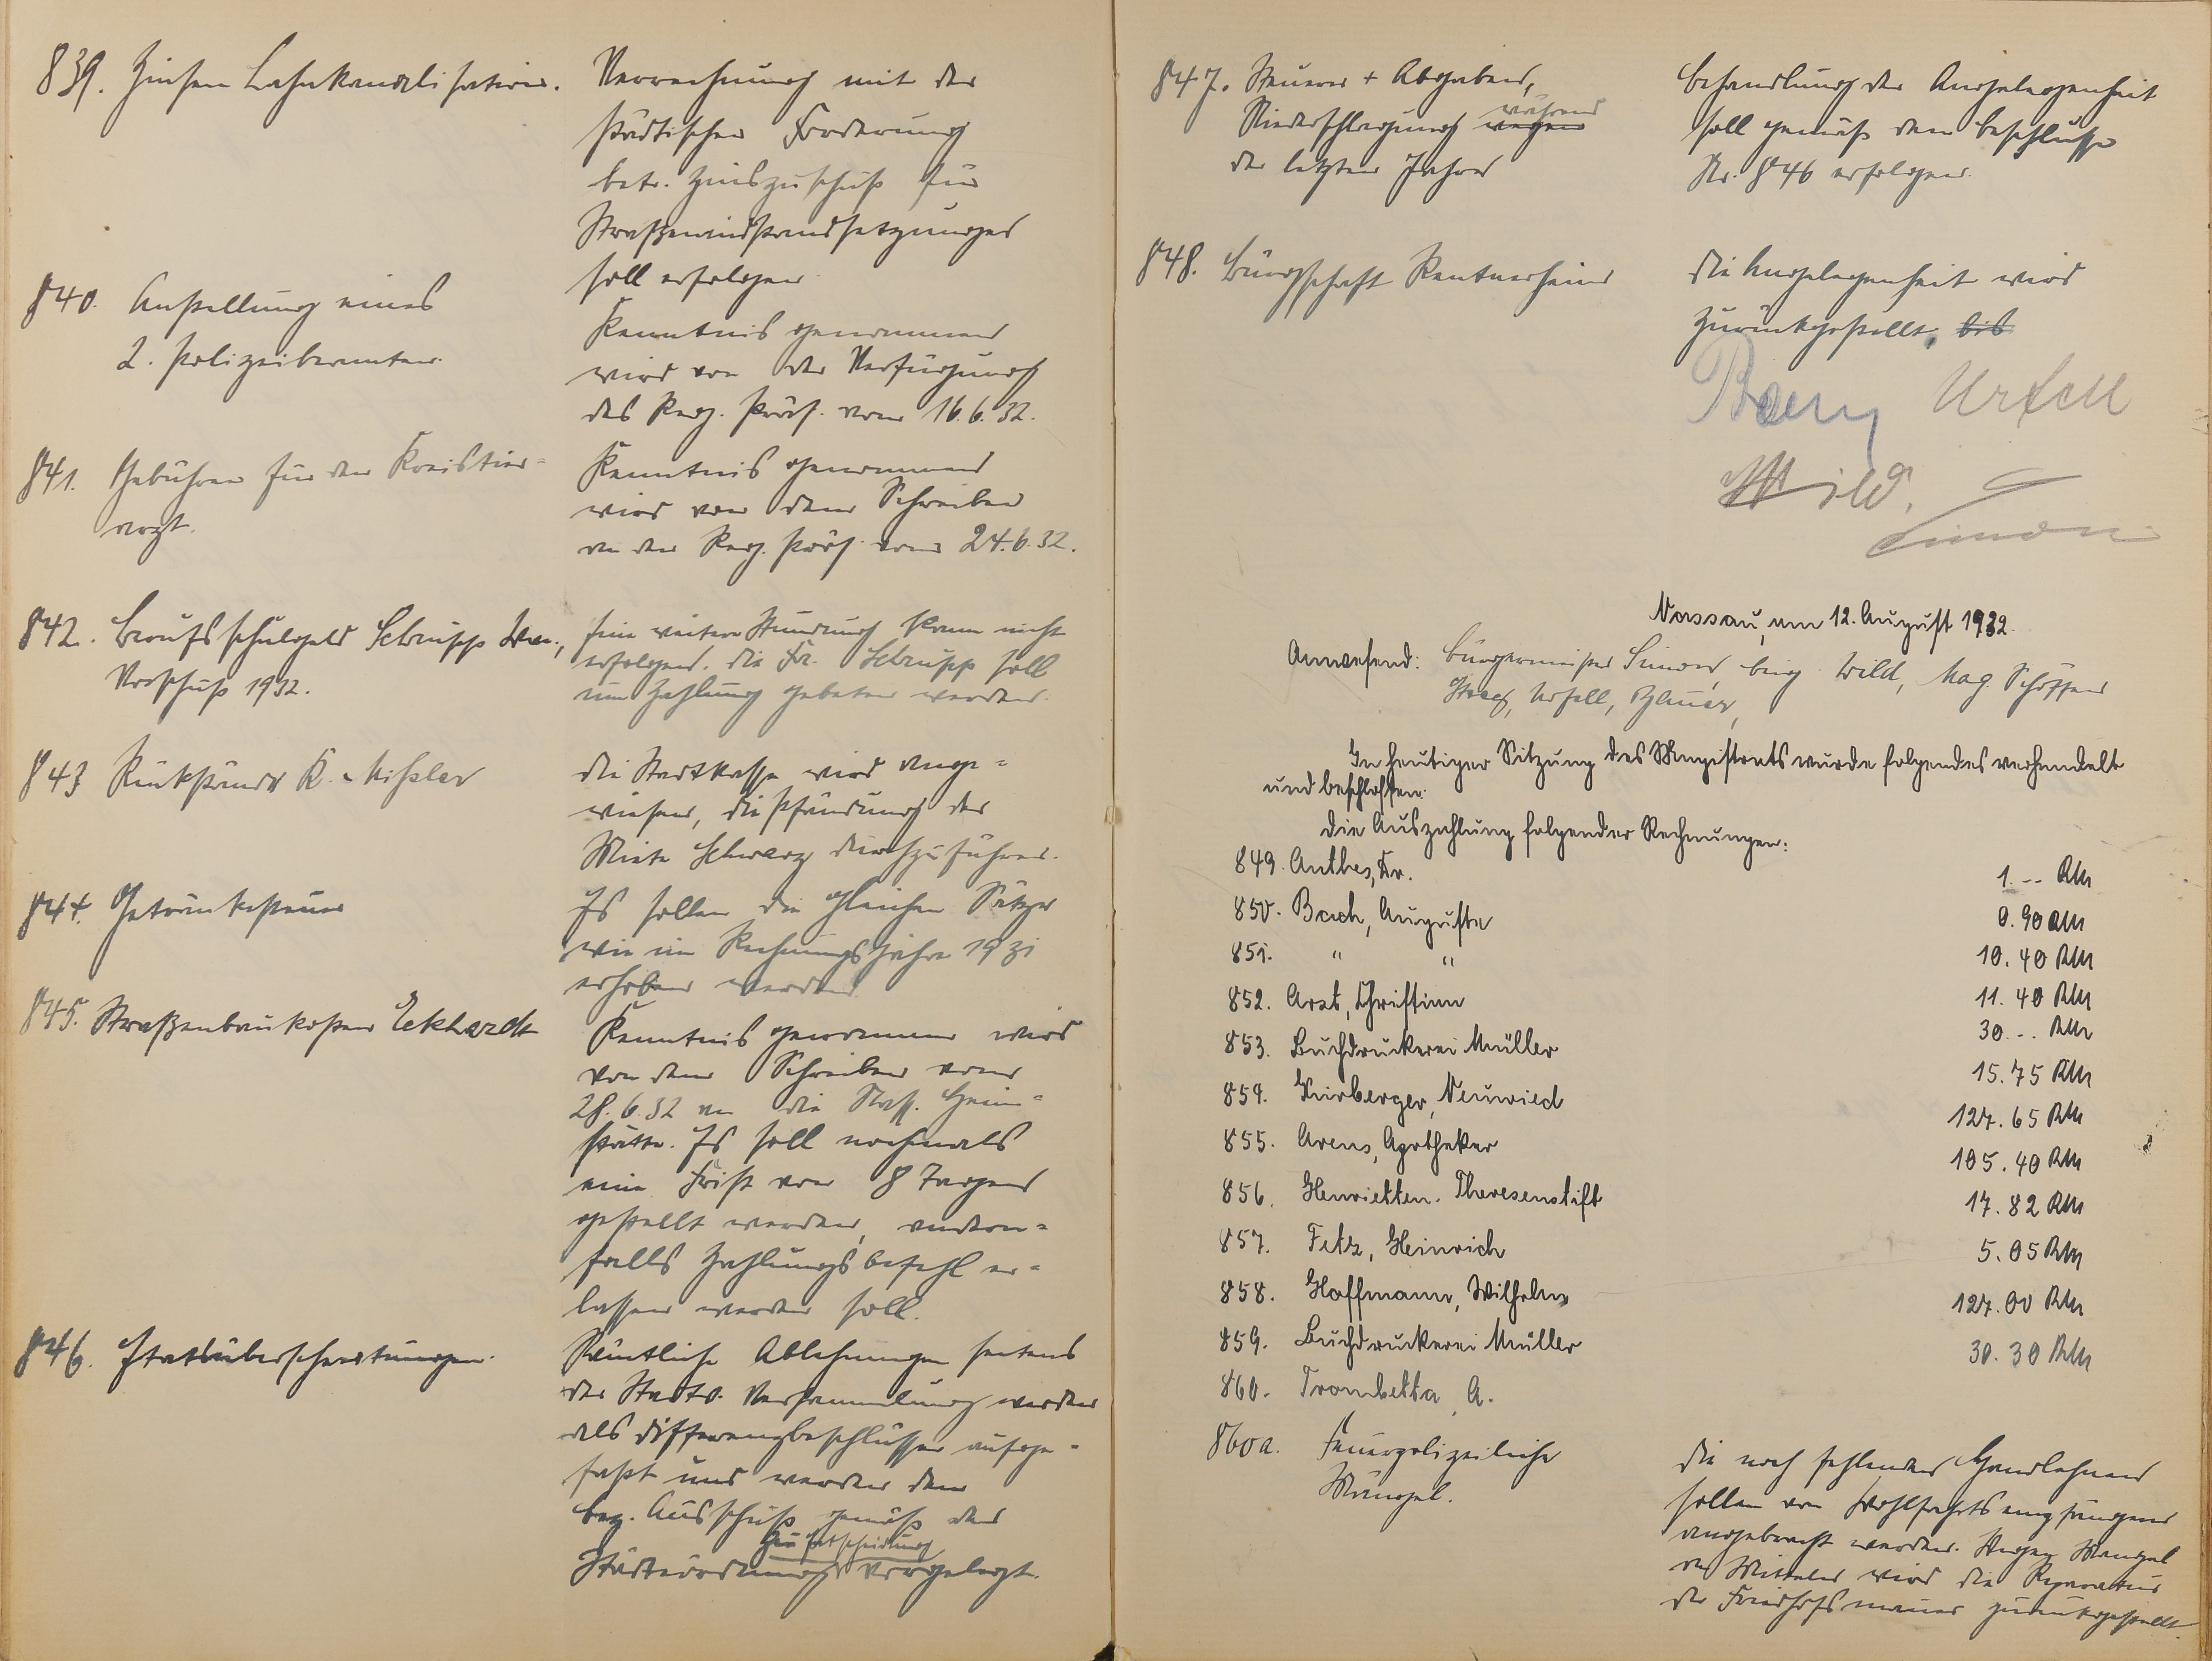 839. Zinsen Lahnkanalisation.
Verrechnung mit der
städtischen Forderung
betr. Zinszuschuß für
Straßeninstandsetzungen
soll erfolgen
840. Anstellung eines
2. Polizeibeamten.
Kenntnis genommen
wird von der Verfügung
des Reg. Präs. vom 16.6.32.
841. Gebühren für den Kreistier=
arzt.
Kenntnis genommen
wird von dem Schreiben
an den Reg. Präs. vom 24.6.32.
842. Berufsschulgeld Schrupp Ww.,
Vorschuß 1932.
Eine weitere Stundung kann nicht
erfolgen. Die Fr. Schrupp soll
um Zahlung gebeten werden.
843 Rückstände K. Mißler
Die Stadtkasse wird ange=
wiesen, die Pfändung der
Miete Schwarz durchzuführen.
844. Getränkesteuer
Es sollen die gleichen Sätze
wie im Rechnungsjahre 1931
erhoben werden
845. Straßenbaukosten Eckhardt
Kenntnis genommen wird
von dem Schreiben vom
28.6.32 an die Nass. Heim=
stätte. Es soll nochmals
eine Frist von 8 Tagen
gestellt werden, andern=
falls Zahlungsbefehl er=
lassen werden soll.
846. Etatsüberschreitungen.
Sämtliche Ablehnungen seitens
der Stadtv. Versammlung werden
als Differenzbeschlüsse aufge=
faßt und werden dem
Bez. Ausschuß gemäß der
zur Entscheidung
Städteordnung vorgelegt.
847. Steuern + Abgaben,
während
Niederschlagung wegen
der letzten Jahre
Behandlung der Angelegenheit
soll gemäß dem Beschlusse
Nr. 846 erfolgen.
848. Bürgschaft Rentnerheim
Die Angelegenheit wird
zurückgestellt, bis
Urfell
Wild.
Simon
Nassau, am 12. August 1932.
Anwesend: Bürgermeister Simon, Beig. Wild, Mag. Schöffen
Urfell,
In heutiger Sitzung des Magistrats wurde folgendes verhandelt
und beschlossen:
Die Auszahlung folgender Rechnungen:
849. Anthes, Fr. 1.-- RM
850. Bach, Auguste 0.90 RM
851. " " 10.40 RM
852. Arzt, Christian 11.40 RM
853. Buchdruckerei Müller 30.-- RM
854. Kirberger, Neuwied 15.75 RM
855. Arens, Apotheker 127.65 RM
856. Henrietten-Theresenstift 105.40 RM
857. Fetz, Heinrich 17.82 RM
858. Hoffmann, Wilhelm 5.05 RM
859. Buchdruckerei Müller 127.00 RM
860. Trombetta, A. 30.30 RM
860a. Feuerpolizeiliche
Mängel.
Die noch fehlenden Handlehnen
sollen von Wohlfahrtsempfängern
angebracht werden. Wegen Mangel
an Mitteln wird die Reparatur
der Friedhofsmauer zurückgestellt.